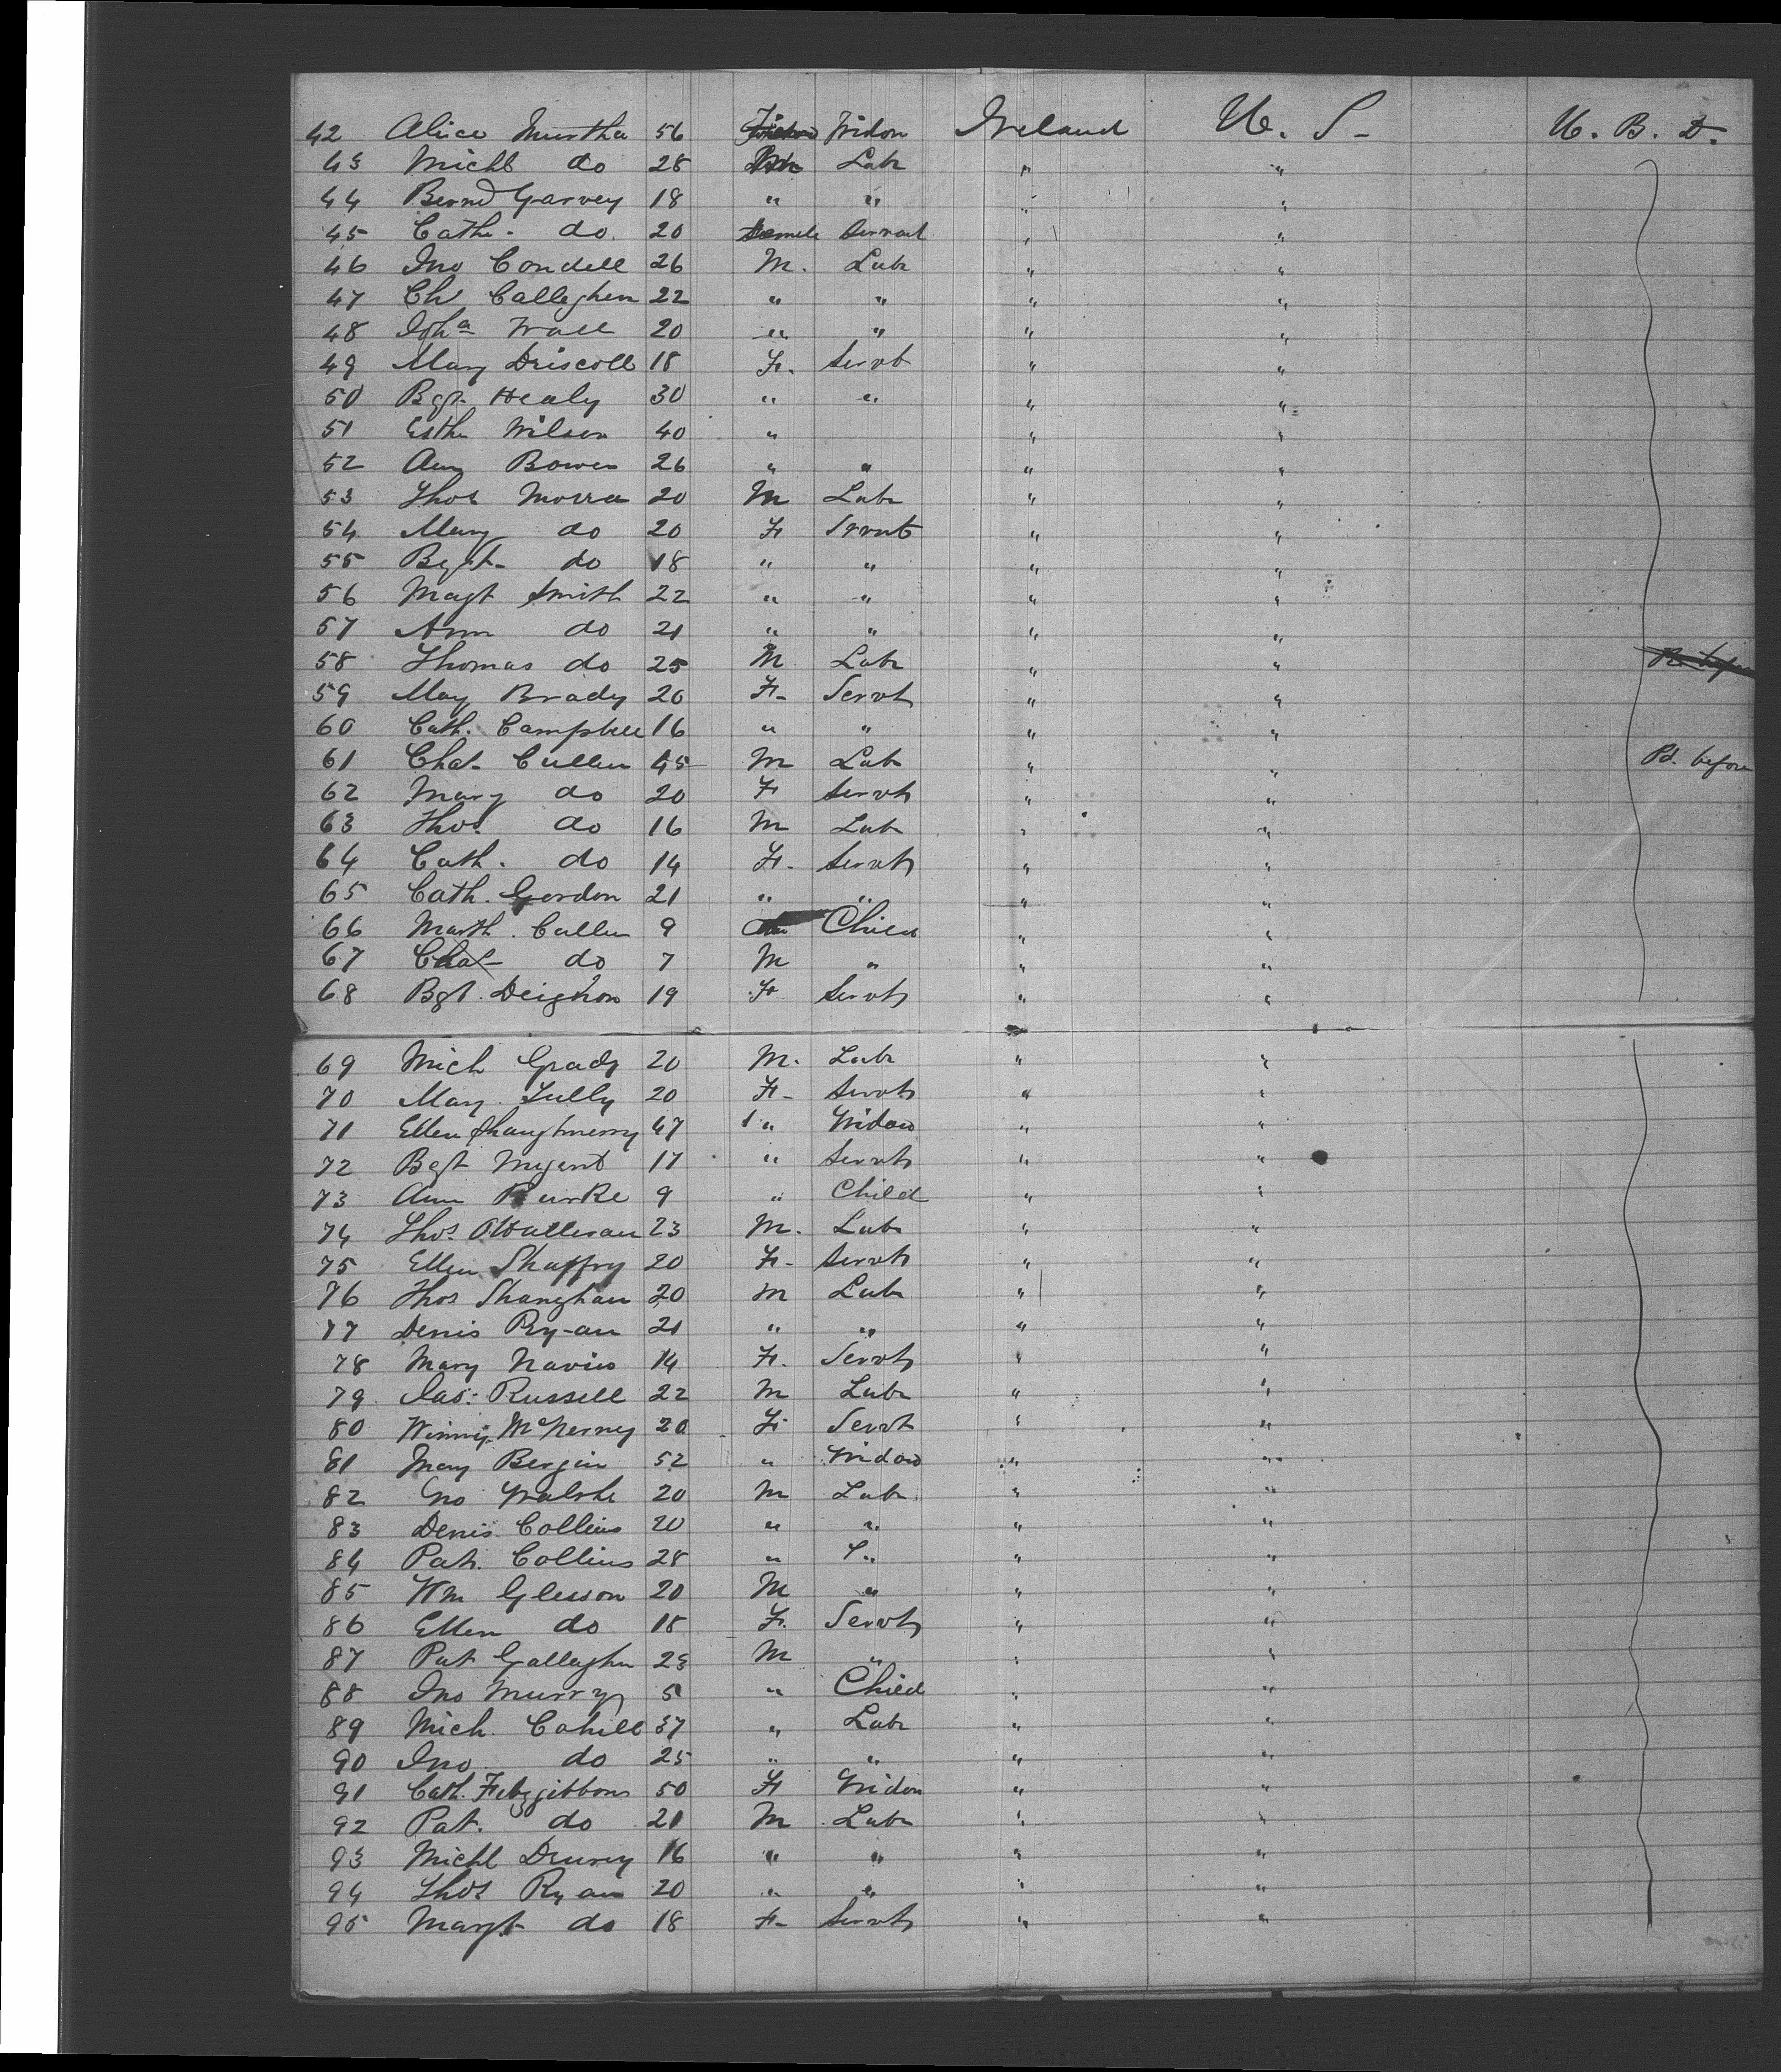 42 Alice Murtha 56 Widow Ireland U. S. U. B. D.
43 Michl do 28 Labr " "
44 Bernd Garvey 18 " " " "
45 Cathe. do 20 Female Servant " "
46 Jno Condell 26 M. Labr " "
47 Ch Callaghen 22 " " " "
48 Joha Wall 20 " " " "
49 Mary Driscoll 18 F. Servt " "
50 Bgt Healy 30 " " " "
51 Esthe Wilson 40 " " "
52 Ann Bowen 26 " " " "
53 Thos 20 M Labr " "
54 Mary do 20 F Srvnt " "
55 Bgt do 18 " " " "
56 Magt Smith 22 " " " "
57 Ann do 21 " " " "
58 Thomas do 25 M Labr " " Pd. before
59 May Brady 20 F. Servt " "
60 Cath. Campbell 16 " " " "
61 Chas Cullen 45 M Labr " " Pd. before
62 Mary do 20 F Servt " "
63 Thos. do 16 M Labr " "
64 Cath. do 14 F. Servt " "
65 Cath. Gordon 21 " " " "
66 Marth. Cullen 9 Child " "
67 Chas do 7 M " " "
68 Bgt. Deignon 19 F Servt " "
69 Mich Grady 20 M. Labr " "
70 Mary Tully 20 F. Servt " "
71 Ellen Shaughnessy 47 " Widow " "
72 Bgt Nugent 17 " Servt " "
73 Ann Burke 9 " Child " "
74 Thos. OHalleran 23 M. Labr " "
75 Ellen Shaffry 20 F. Servt " "
76 Thos Shanghan 20 M Labr " "
77 Denis Ryan 21 " " " "
78 Mary Navies 14 F. Servt " "
79 Jas: Russell 22 M Labr " "
80 Winny McNerney 20 F Servt " "
81 Mary Bergin 52 " Widow " "
82 Jno Walshe 20 M Labr " "
83 Denis Collins 20 " " " "
84 Pat. Collins 28 " " " "
85 Wm Gleeson 20 M " " "
86 Ellen do 18 F. Servt " "
87 Pat Gallagher 23 M " " "
88 Jno Murry 5 " Child " "
89 Mich. Cahill 37 " Labr " "
90 Jno do 25 " " " "
91 Cath. Fitzgibbons 50 F Widow " "
92 Pat. do 21 M Labr " "
93 Michl Drury 16 " " " "
94 Thos Ryan 20 " " " "
95 Margt do 18 F. Servt " "